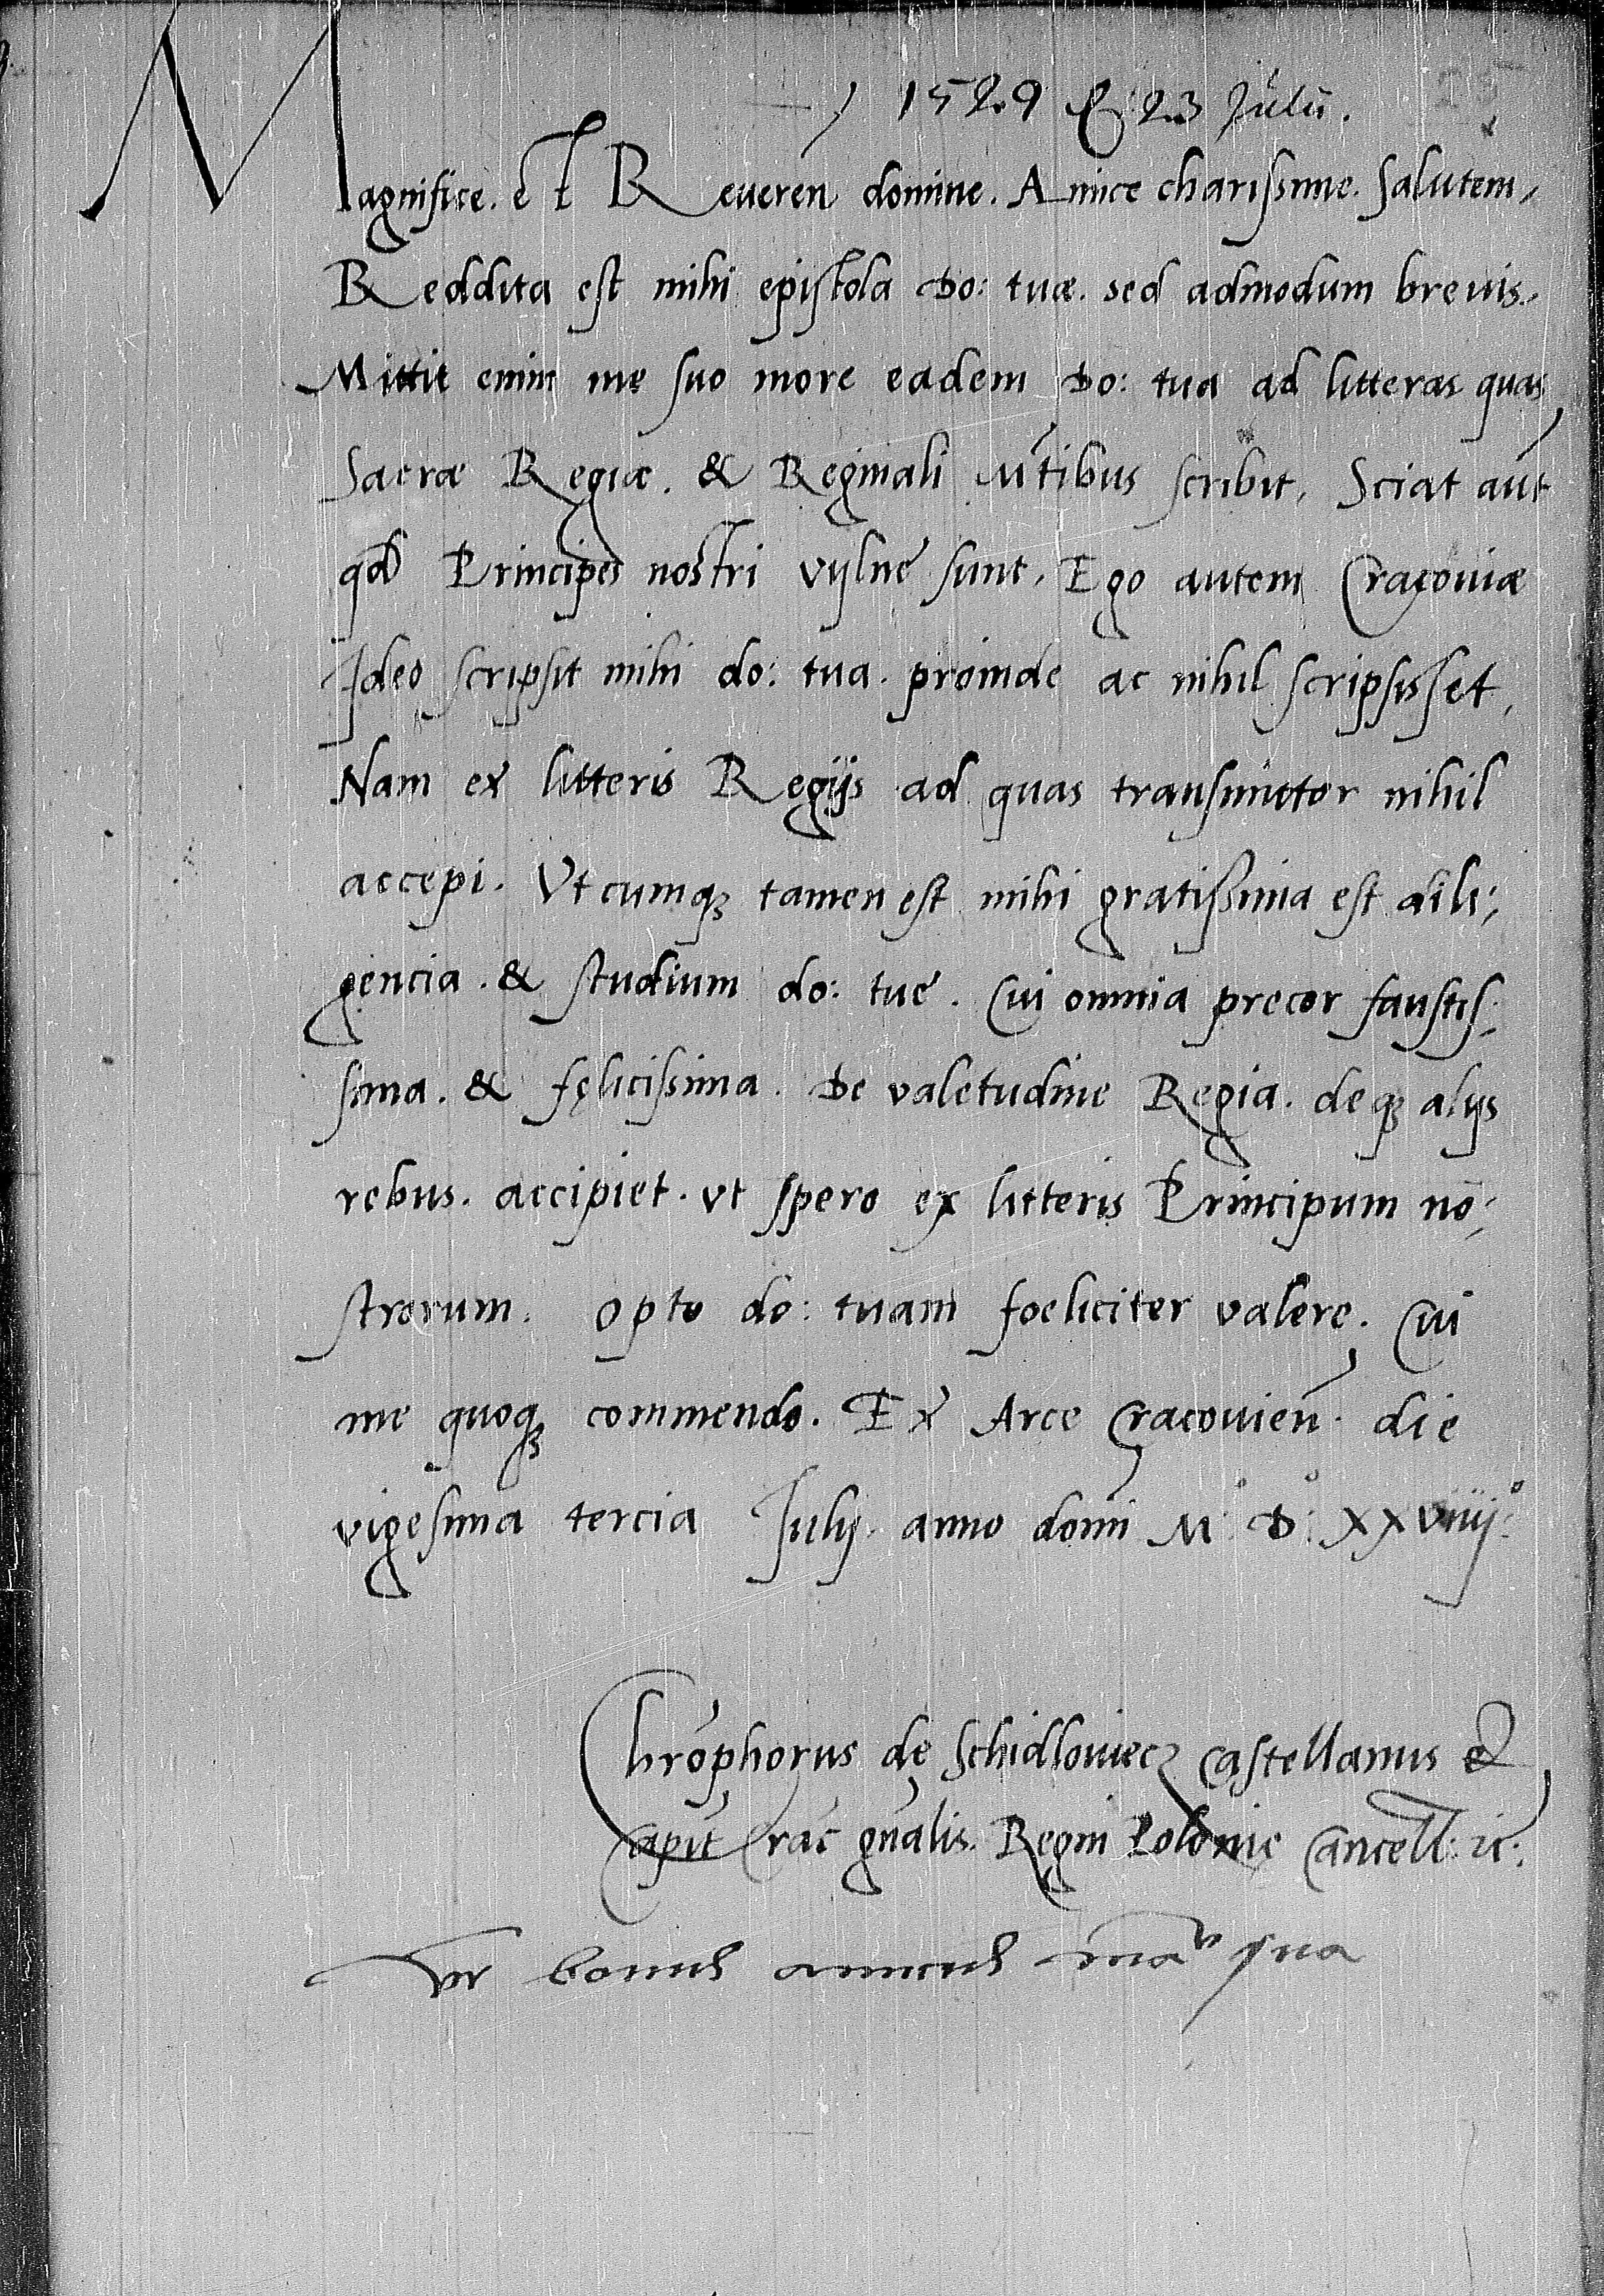 1529 23 Julii.
Magnifice. et Reueren domine. Amice charissime. Salutem,
Reddita est mihi epistola Do: tuæ. sed admodum breuis.
Mittit enim me suo more eadem Do: tua ad litteras quas
Sacræ Regiæ. & Reginali Mtibus scribit, Sciat aut
qd Principes nostri vylne sunt, Ego autem Cracouiæ
Ideo scripsit mihi do: tua. proinde ac nihil scripsisset,
Nam ex litteris Regijs ad quas transmittor nihil
accepi. Vtcumqꝫ tamen est mihi gratissima est dili:
gencia. & studium do: tue. Cui omnia precor faustis:
sima. & fęlicissima. De valetudine Regia. deqꝫ alijs
rebus. accipiet. vt spero ex litteris Principum no:
strorum. opto do: tuam foeliciter valere. Cui
me quoqꝫ commendo. Ex Arce Cracouien̄. die
vigesima tercia Julij. anno domi M: D: XXViiij:°
Chrophorus de Schidlouiecz Castellanus &
Capit Crac gn̄alis. Regni Polonie Cancell: ꝛc:
vr bonus amicus man sua